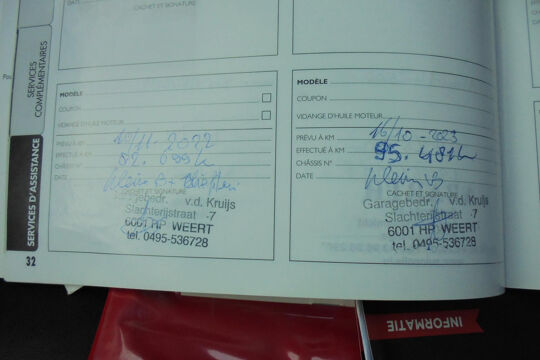 DATE
CACHET ET SIGNATURE
SERVICES COMPLÉMENTAIRES
SERVICES D'ASSISTANCE
MODÈLE
COUPON
VIDANGE D'HUILE MOTEUR
PRÉVU À KM
EFFECTUÉ À KM
CHÂSSIS N°
DATE
CACHET ET SIGNATURE
v.d. Kruijs
Slachterijstraat 7
6001 HP WEERT
tel. 0495-536728
32
MODÈLE
COUPON
VIDANGE D'HUILE MOTEUR
PRÉVU À KM 16/10-2023
EFFECTUÉ À KM 95.481
CHÂSSIS N°
DATE
CACHET ET SIGNATURE
Garagebedr. v.d. Kruijs
Slachterijstraat 7
6001 HP WEERT
tel. 0495-536728
INFORMATIE